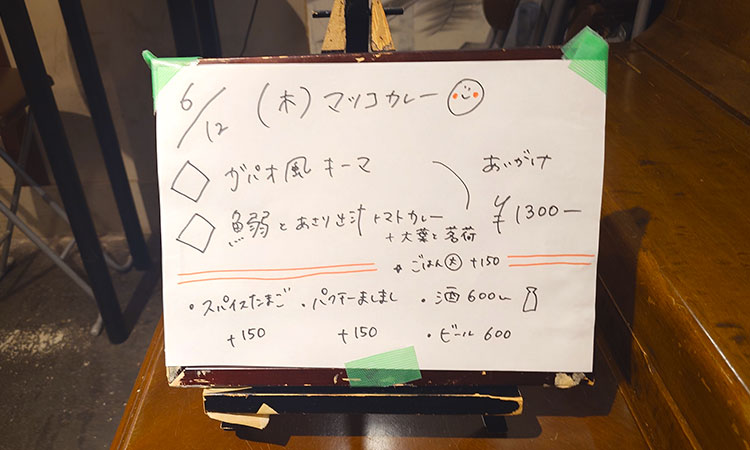 6/12 (木) マツコカレー
◇ ガパオ風キーマ
あいがけ
◇ 鰯とあさり出汁トマトカレー
+大葉と茗荷
¥1300-
* ごはん大 +150
・スパイスたまご +150
・パクチーましまし +150
・酒 600
・ビール 600